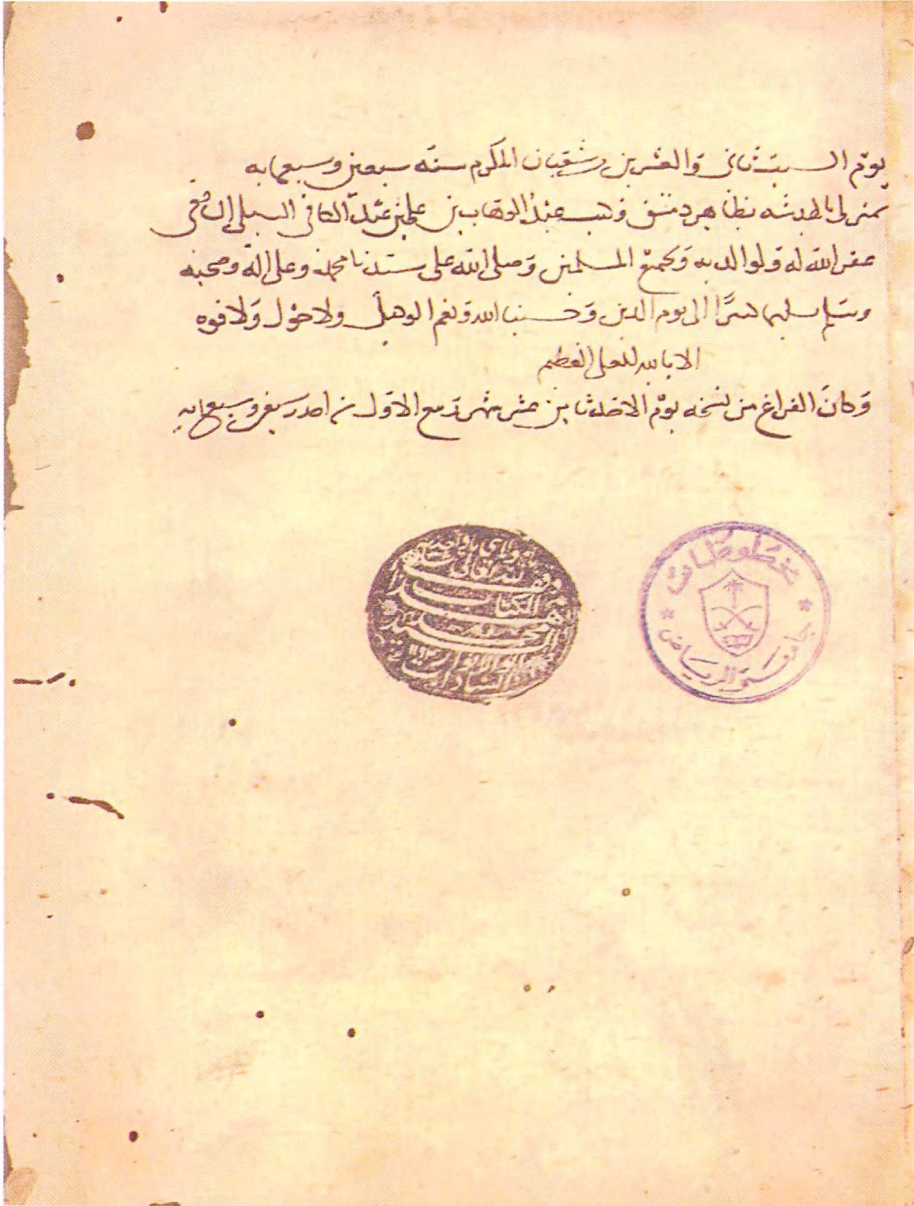 يوم السبت ثاني والعشرين من شعبان المكرم سنة سبعين وسبعمايه
بمنزلي بالدهشه بظاهر دمشق وكتب عبد الوهاب بن علي بن عبد الكافي السبكي الشافعي
غفر الله له ولوالديه ولجميع المسلمين وصلى الله على سيدنا محمد وعلى اله وصحبه
وسلم تسليما كثيرًا الى يوم الدين وحسبنا الله ونعم الوكيل ولا حول ولا قوه
الا بالله العلي العظيم
وكان الفراغ من نسخه يوم الاحد ثامن عشر شهر ربيع الاول سنه احدى وسبعين وسبعمايه
وقف لله تعالى
هذا الكتاب
محمد
السادات
مخطوطات
جامعة الرياض